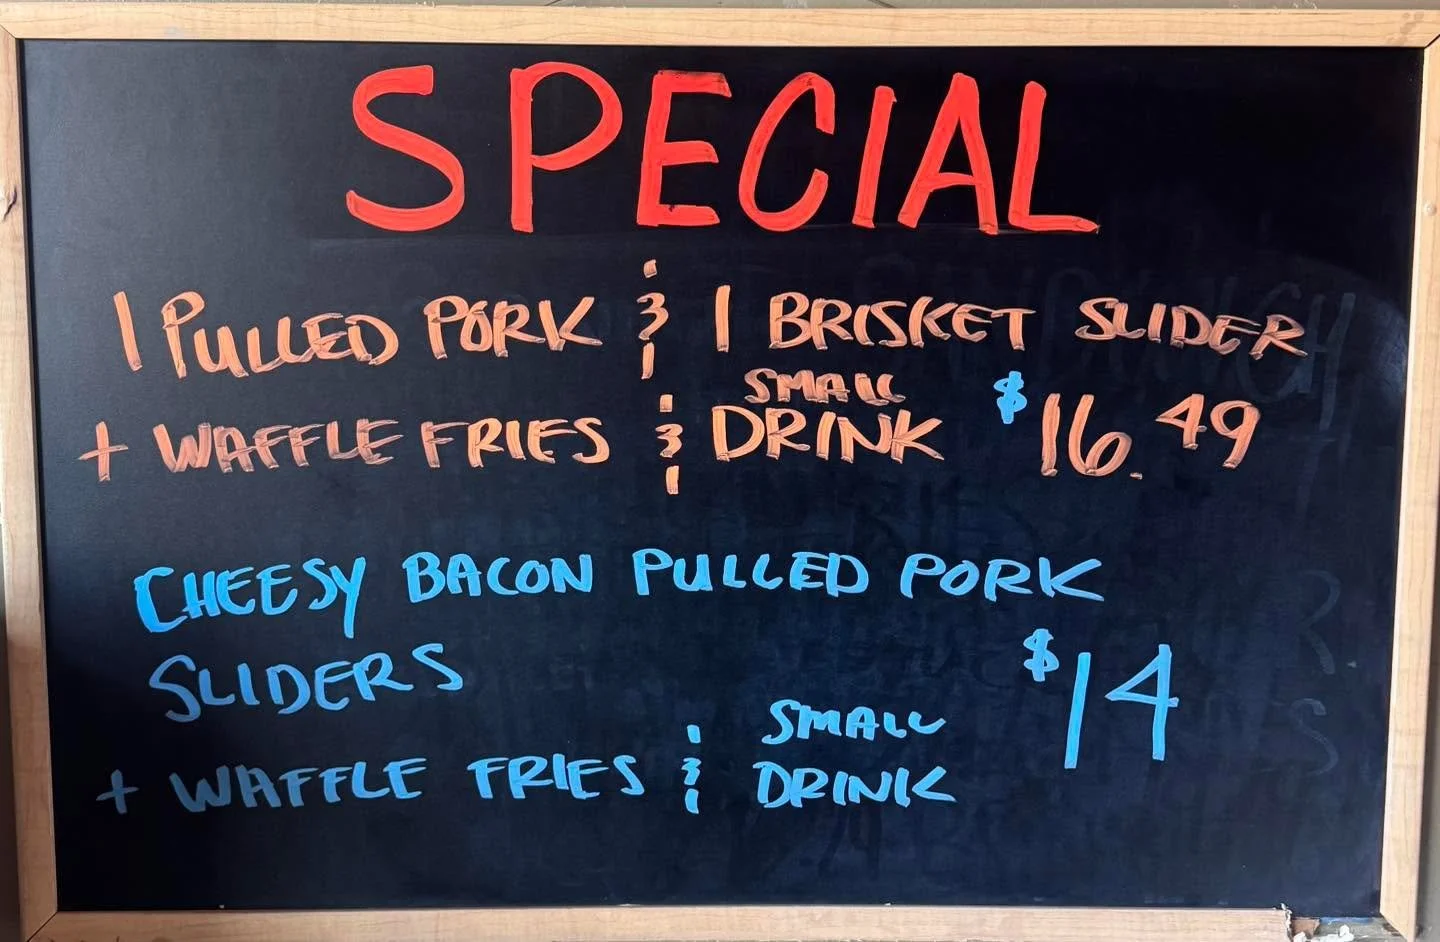 SPECIAL
1 PULLED PORK & 1 BRISKET SLIDER
+ WAFFLE FRIES & SMALL DRINK $16.49
CHEESY BACON PULLED PORK
SLIDERS $14
+ WAFFLE FRIES & SMALL DRINK